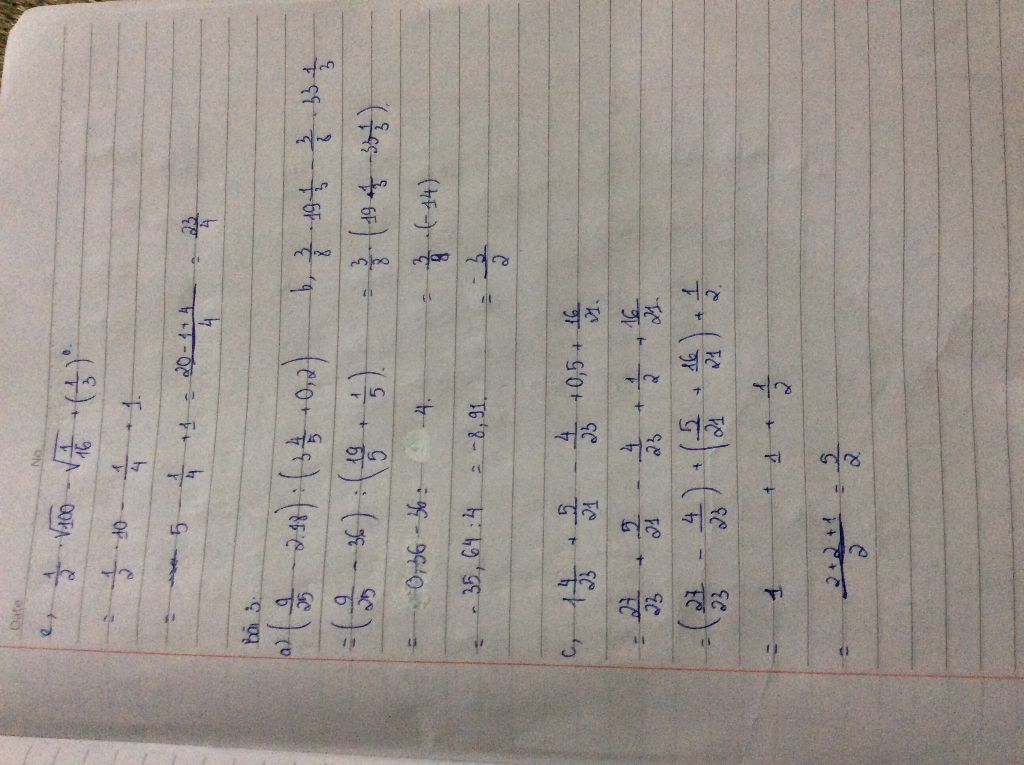 No.
Date
e, 1/2 . √100 - √(1/16) + (1/3)^0.
= 1/2 . 10 - 1/4 + 1.
= 5 - 1/4 + 1 = (20 - 1 + 4)/4 = 23/4
Bài 3:
a) (9/25 - 2.18) : (3 4/5 + 0,2)
= (9/25 - 36) : (19/5 + 1/5).
= 0,36 - 36 : 4.
= - 35,64 : 4 = -8,91.
b, 3/8 . 19 1/3 - 3/8 . 33 1/3
= 3/8 . (19 1/3 - 33 1/3).
= 3/8 . (-14)
= - 3/2
c, 1 4/23 + 5/21 - 4/23 + 0,5 + 16/21.
= 27/23 + 5/21 - 4/23 + 1/2 + 16/21.
= (27/23 - 4/23) + (5/21 + 16/21) + 1/2.
= 1 + 1 + 1/2
= (2 + 2 + 1)/2 = 5/2